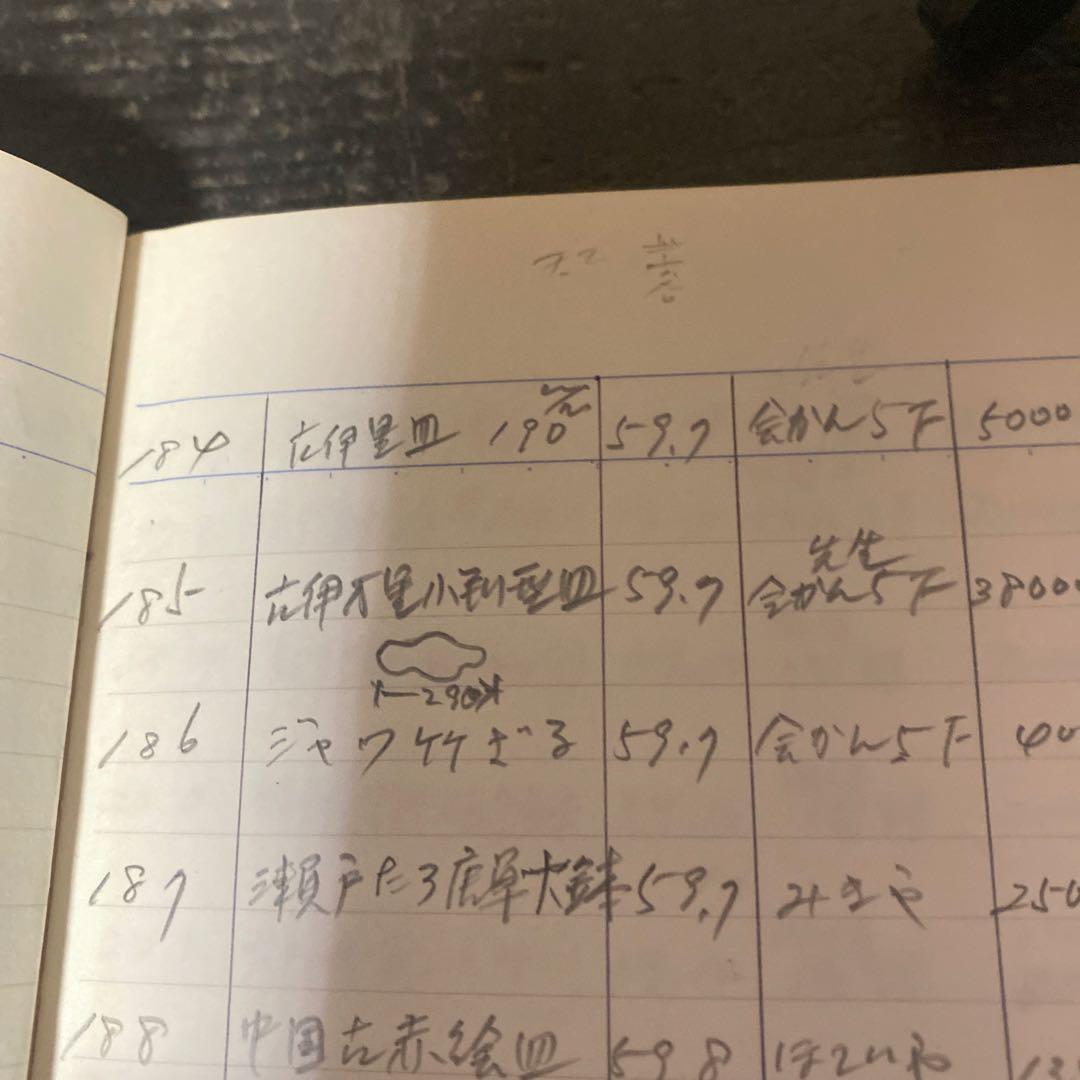 184 古伊里皿 190 59.7 会かん5F 5000
185 古伊万里小判型皿 59.7 先生 会かん5F 38000
290
186 ジャワ竹ざる 59.7 会かん5F 40
187 瀬戸たこ唐草大鉢 59.7 みきや 250
188 中国古赤絵皿 59.8